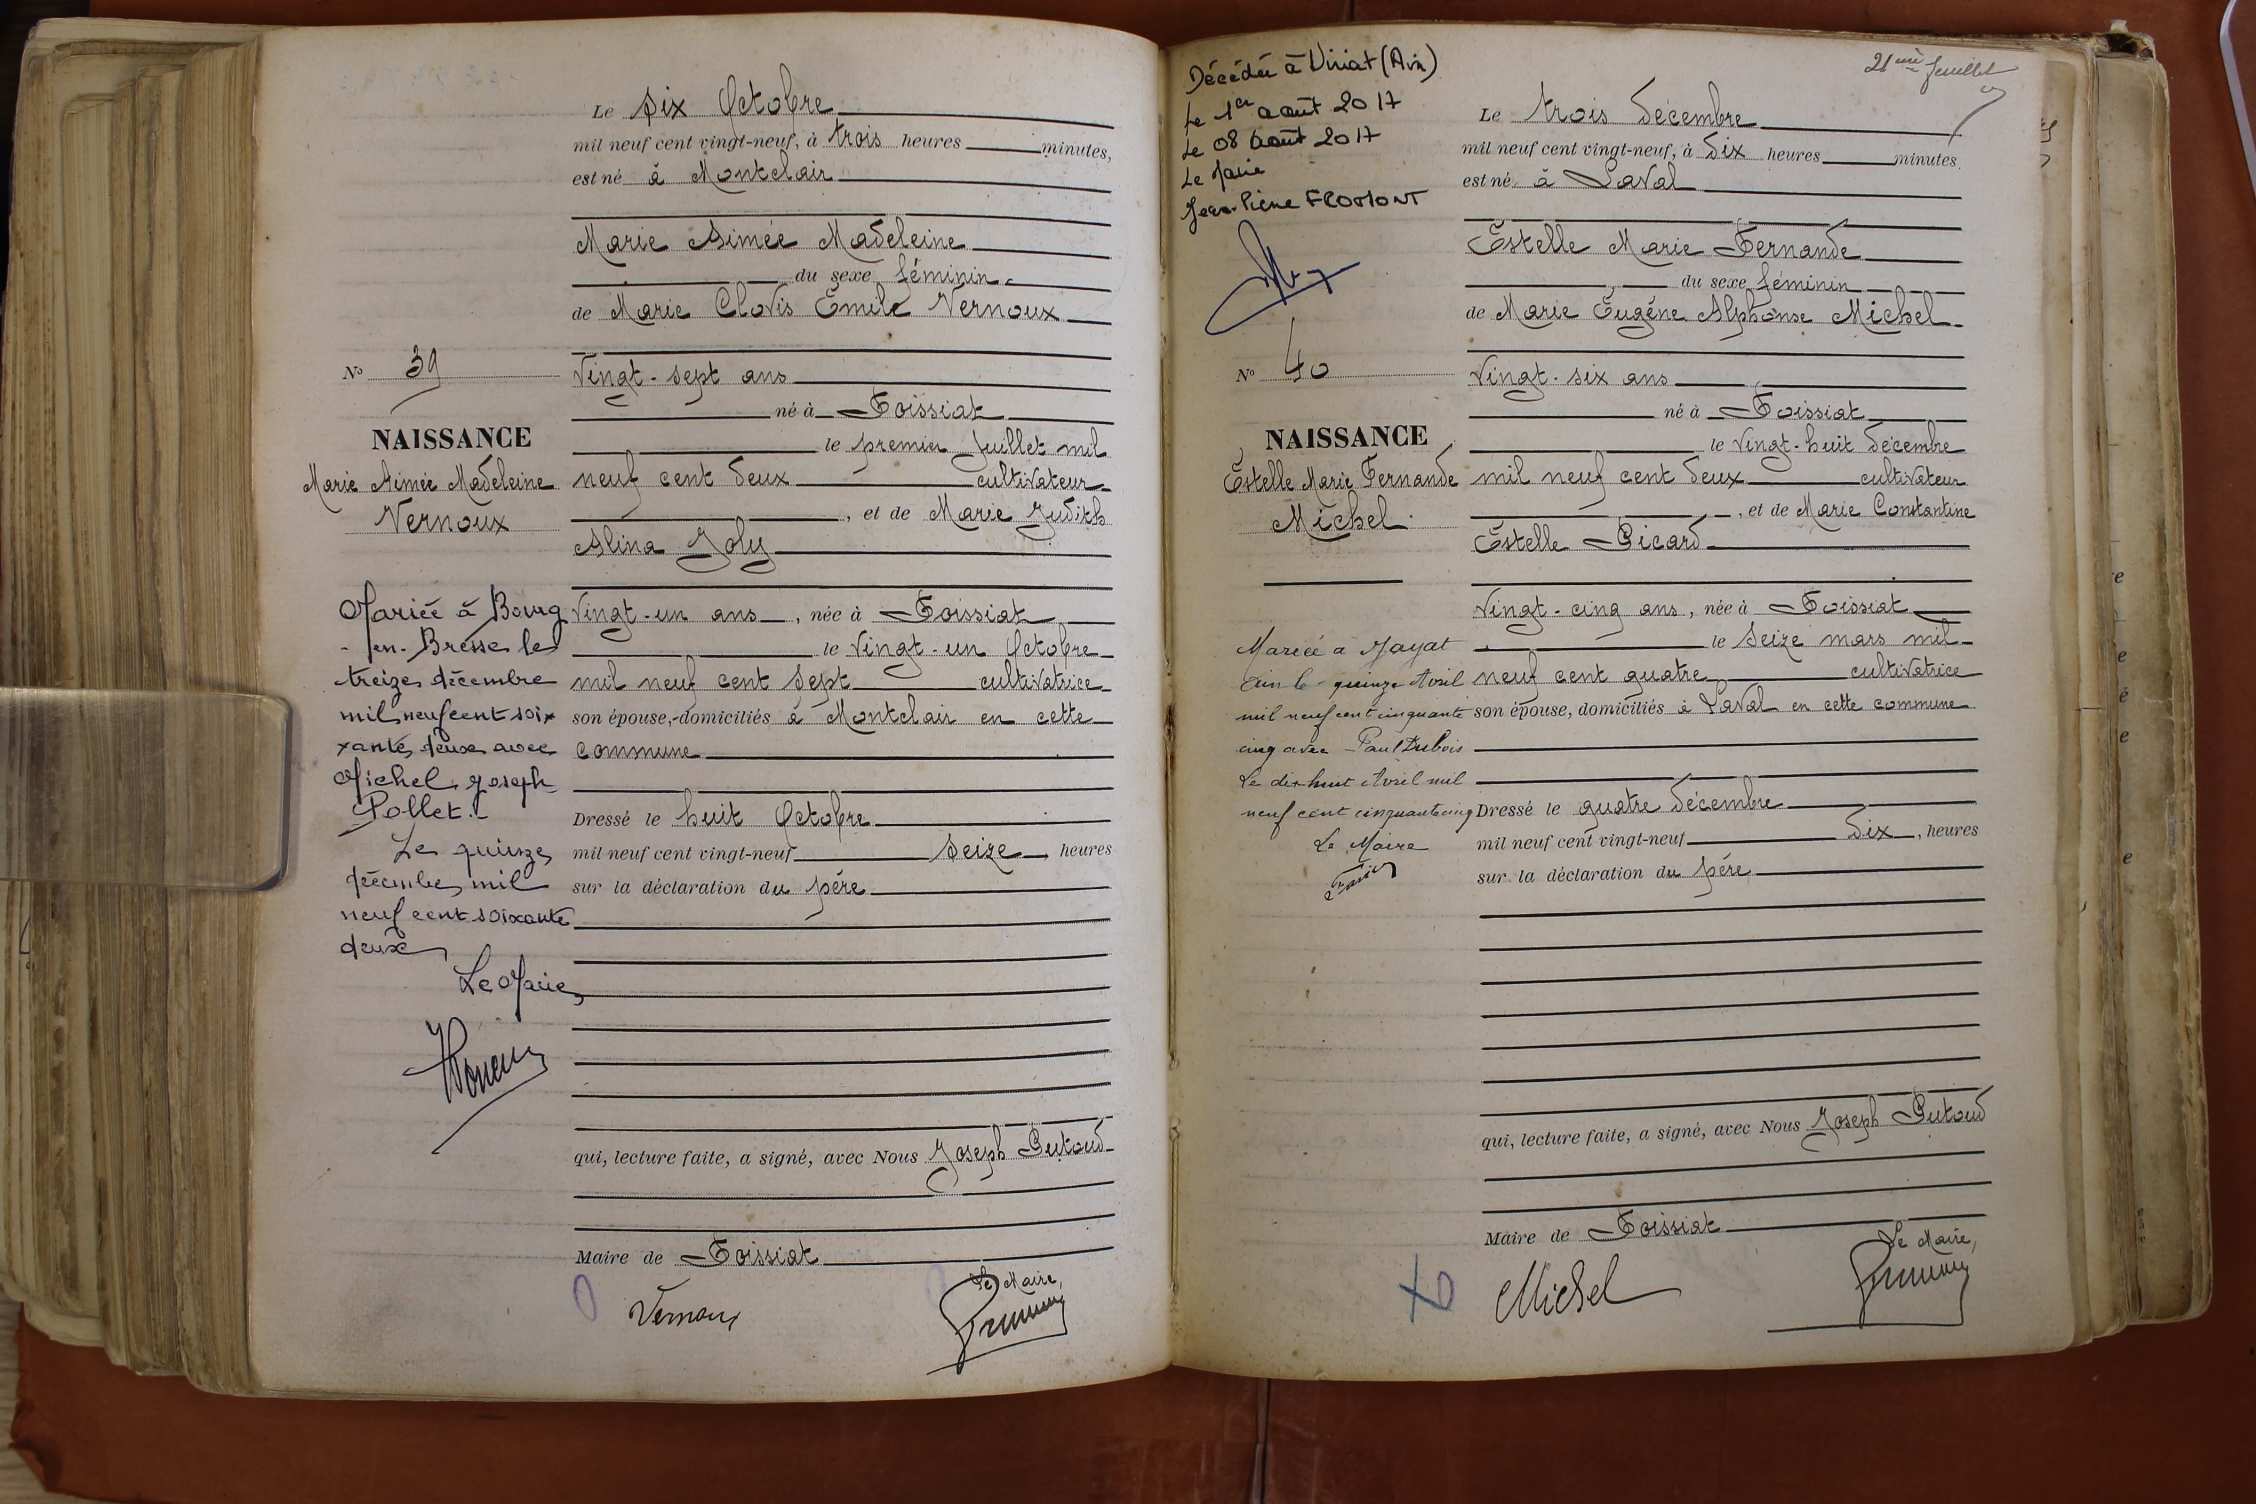 Le six Octobre
mil neuf cent vingt-neuf, à trois heures minutes,
est né à Montclair
Marie Aimée Madeleine
du sexe féminin
de Marie Clovis Emile Vernoux
No 39
Vingt-sept ans
né à Foissiat
NAISSANCE
le premier Juillet mil
Marie Aimée Madeleine
neuf cent deux cultivateur
Vernoux
, et de Marie Judith
Alina Joly
Vingt-un ans, née à Foissiat
le vingt-un Octobre
mil neuf cent sept cultivatrice
son épouse, domiciliés à Montclair en cette
commune
Dressé le huit Octobre
mil neuf cent vingt-neuf seize heures
sur la déclaration du père
Mariée à Bourg
-en-Bresse le
treize décembre
mil neuf cent soix
xante deux avec
Michel Joseph
Pollet.
Le quinze
décembre mil
neuf cent soixante
deux
Le Maire,
qui, lecture faite, a signé, avec Nous Joseph Putoud
Maire de Foissiat
Vernoux
Le Maire,
Décédée à Viriat (Ain)
Le 1er août 2017
Le 08 août 2017
Le Maire
Jean-Pierre FROMONT
21me feuillet
Le trois décembre
mil neuf cent vingt-neuf, à dix heures minutes
est né à Laval
Estelle Marie Fernande
du sexe féminin
de Marie Eugène Alphonse Michel
No 40
Vingt-six ans
né à Foissiat
NAISSANCE
le vingt-huit décembre
Estelle Marie Fernande
mil neuf cent deux cultivateur
Michel
, et de Marie Constantine
Estelle Picard
Vingt-cinq ans, née à Foissiat
le seize mars mil
neuf cent quatre cultivatrice
son épouse, domiciliés à Laval en cette commune
Mariée à Jayat
Ain le quinze Avril
mil neuf cent cinquante
cinq avec Paul Dubois
Le dix huit Avril mil
neuf cent cinquante cinq
Le Maire
Dressé le quatre décembre
mil neuf cent vingt-neuf dix, heures
sur la déclaration du père
qui, lecture faite, a signé, avec Nous Joseph Putoud
Maire de Foissiat
Michel
Le Maire,